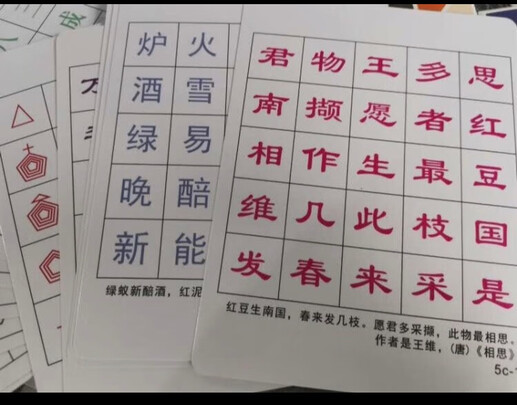 成
万
炉 火
酒 雪
绿 易
晚 醅
新 能
绿蚁新醅酒，红泥
君 物 王 多 思
南 撷 愿 者 红
相 作 生 最 豆
维 几 此 枝 国
发 春 来 采 是
红豆生南国，春来发几枝。愿君多采撷，此物最相思。
作者是王维，(唐)《相思》
5c-